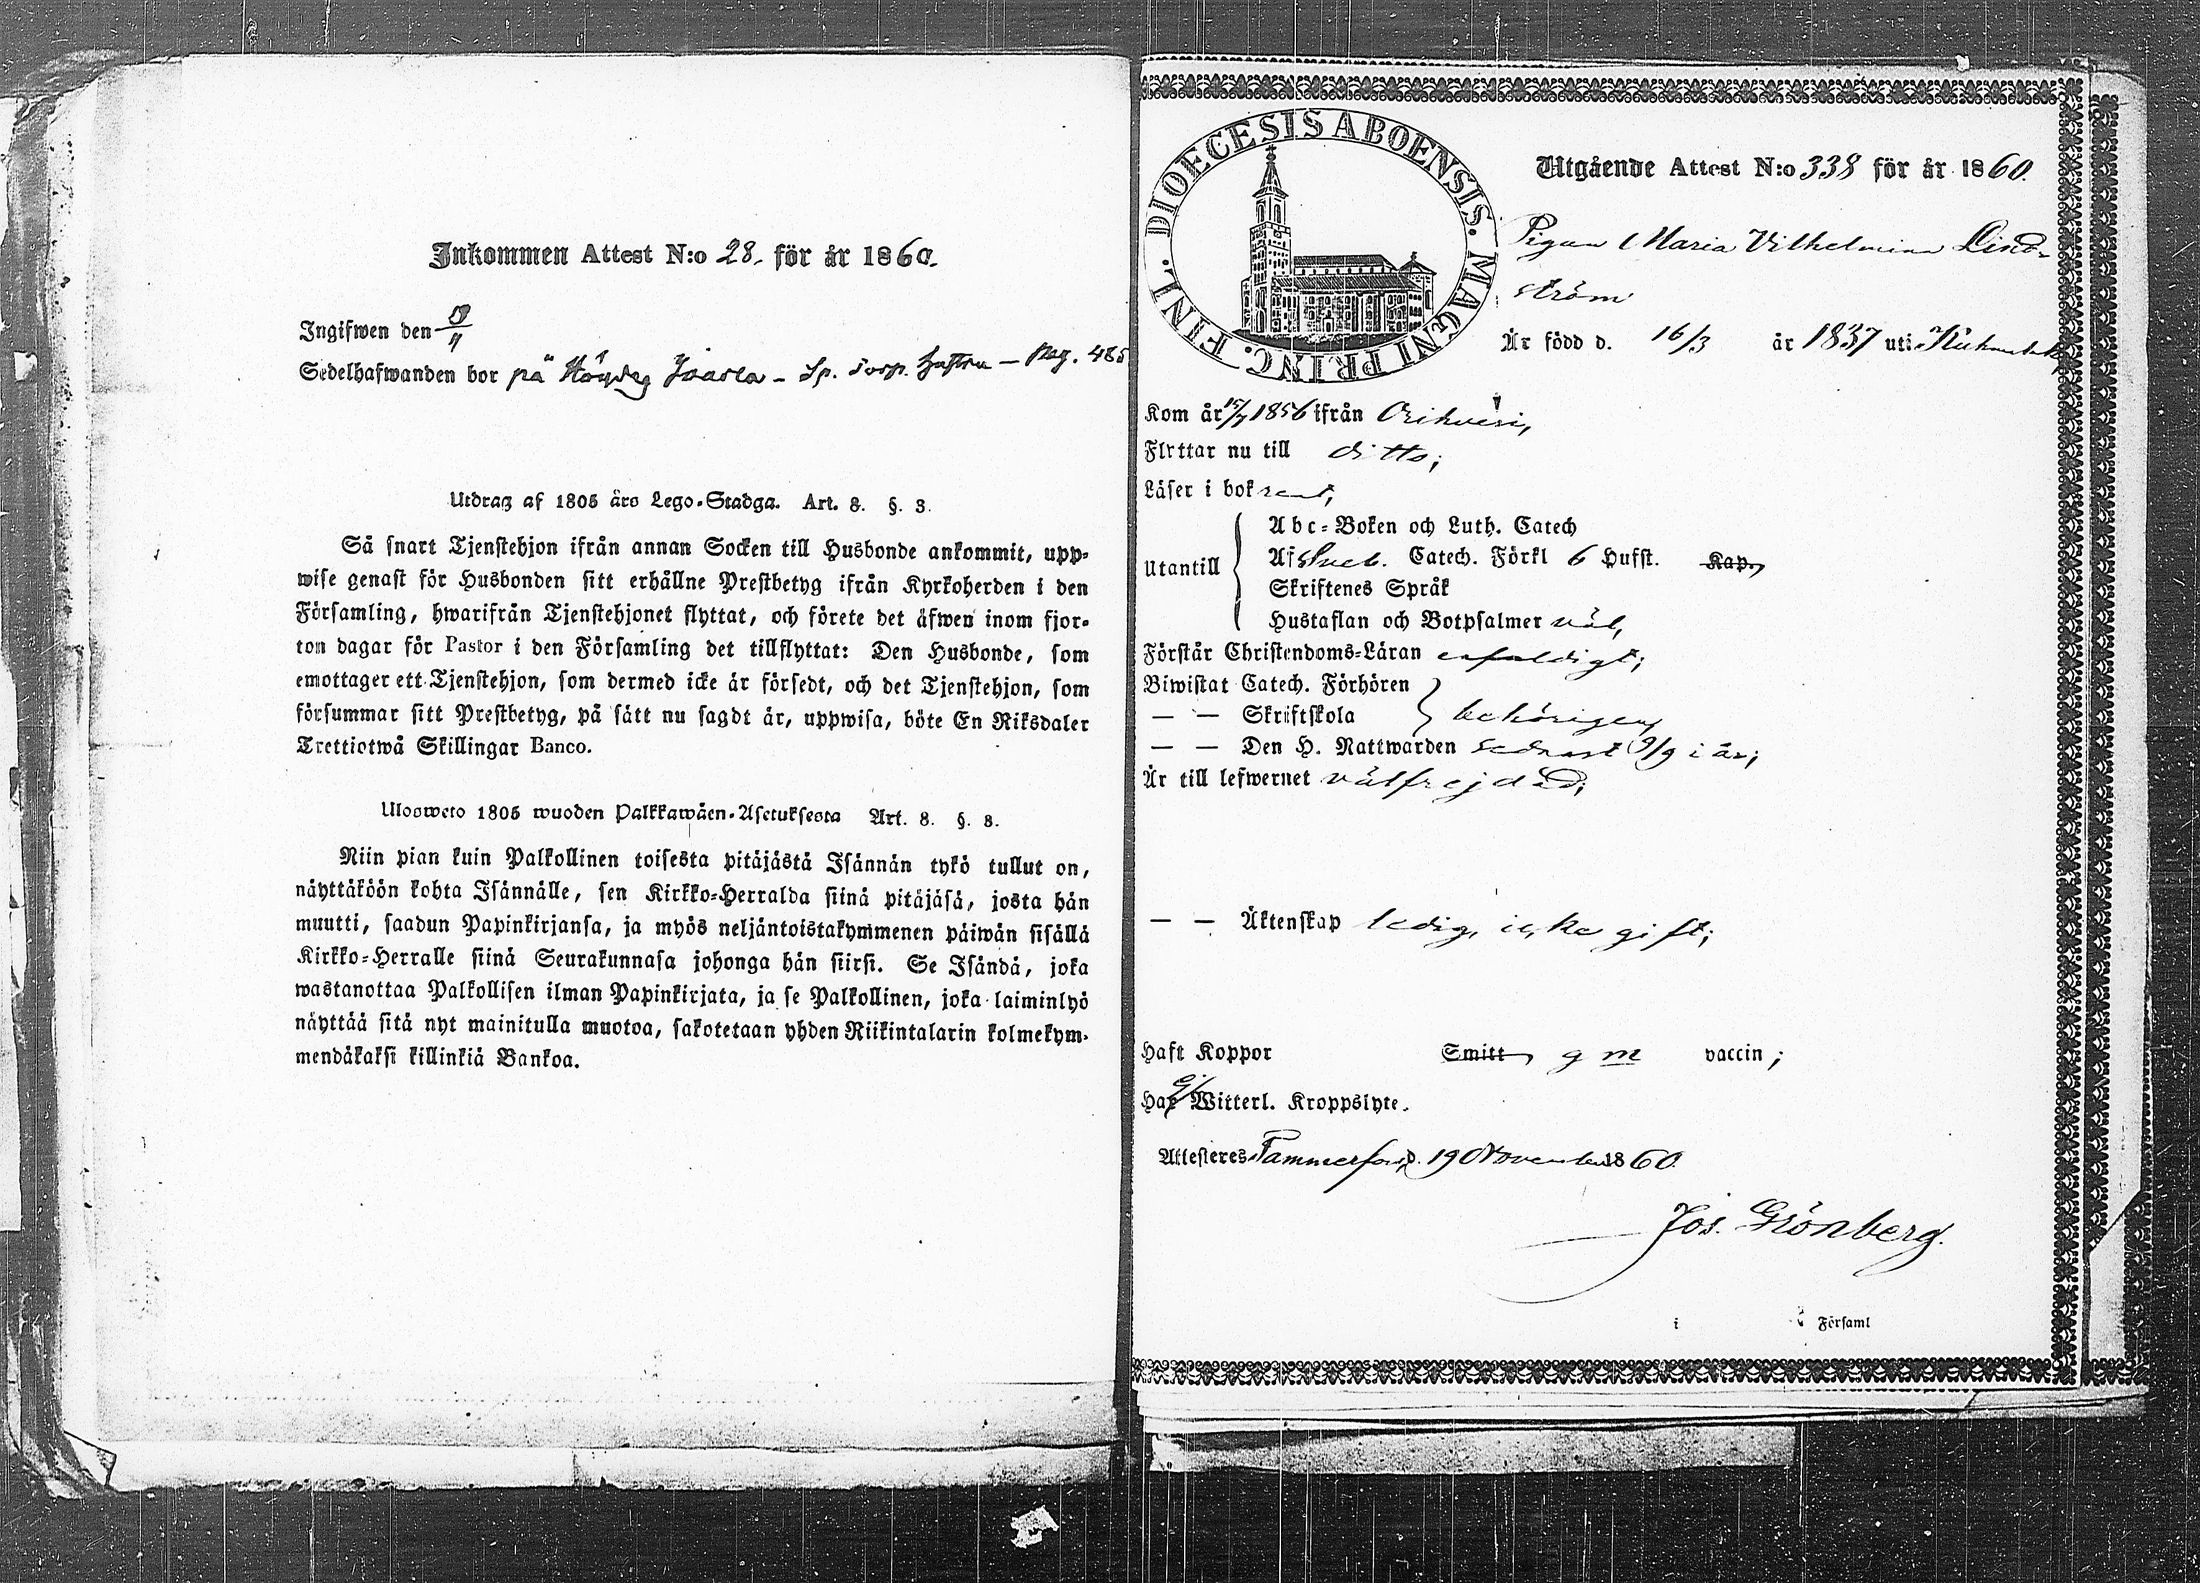 Inkommen Attest N:o 28. för år 1860.
Ingifwen den 19/11
Sedelhafwanden bor på
Utdrag af 1805 års Lego-Stadga. Art. 8. §. 3.
Så snart Tjenstehjon ifrån annan Socken till Husbonde ankommit, upp-
wise genast för Husbonden sitt erhållne Prestbetyg ifrån Kyrkoherden i den
Församling, hwarifrån Tjenstehjonet flyttat, och förete det äfwen inom fjor-
ton dagar för Pastor i den Församling det tillflyttat: Den Husbonde, som
emottager ett Tjenstehjon, som dermed icke är försedt, och det Tjenstehjon, som
försummar sitt Prestbetyg, på sätt nu sagdt är, uppwisa, böte En Riksdaler
Trettiotwå Skillingar Banco.
Ulosweto 1805 wuoden Palkkawäen-Asetuksesta Art. 8. §. 8.
Niin pian kuin Palkollinen toisesta pitäjästä Isännän tykö tullut on,
näyttäköön kohta Isännälle, sen Kirkko-Herralda siinä pitäjäsä, josta hän
muutti, saadun Papinkirjansa, ja myös neljäntoistakymmenen päiwän sisällä
Kirkko-Herralle siinä Seurakunnasa johonga hän siirsi. Se Isändä, joka
wastanottaa Palkollisen ilman Papinkirjata, ja se Palkollinen, joka laiminlyö
näyttää sitä nyt mainitulla muotoa, sakotetaan yhden Riikintalarin kolmekym-
mendäkaksi killinkiä Bankoa.
DIOECESIS ABOENSIS. MAGNI PRINC. FINL.
Utgående Attest N:o 338 för år 1860.
Pigan Maria Vilhelmina Lind-
ström
Är född d. 16/3 år 1837 uti
Kom år 15/7 1856 ifrån Orihvesi,
Flyttar nu till ditto;
Läser i bok rent,
Utantill
Abc-Boken och Luth. Catech
Af Sveb. Catech. Förkl 6 Hufst. Kap.
Skriftenes Språk
Hustaflan och Botpsalmer väl,
Förstår Christendoms-Läran enfaldigt;
Biwistat Catech. Förhören
— — Skriftskola behörigen,
— — Den H. Nattwarden sednast 9/9 i år;
Är till lefwernet välfrejdad;
— — Äktenskap ledig, icke gift;
Haft Koppor Smitt, g m vaccin;
Har Ej Witterl. Kroppslyte.
Attesteres Tammerfors d. 19 November 1860.
Jos. Grönberg.
i Församl